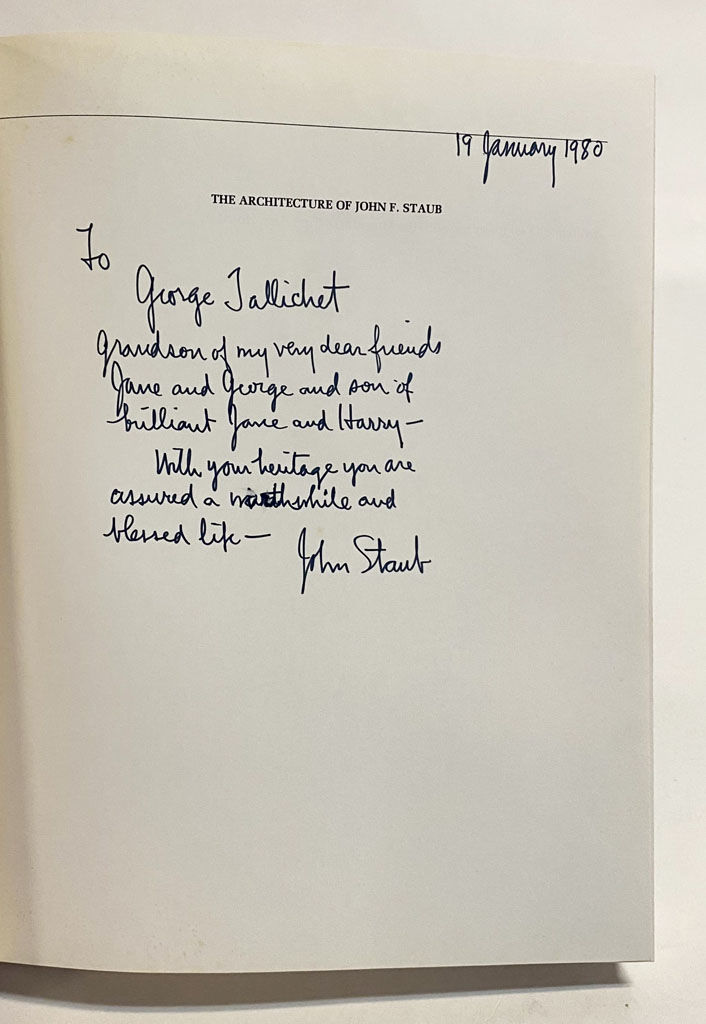 19 January 1980
THE ARCHITECTURE OF JOHN F. STAUB
To
George Tallichet
Grandson of my very dear friends
Jane and George and son of
brilliant Jane and Harry—
With your heritage you are
assured a worthwhile and
blessed life—
John Staub